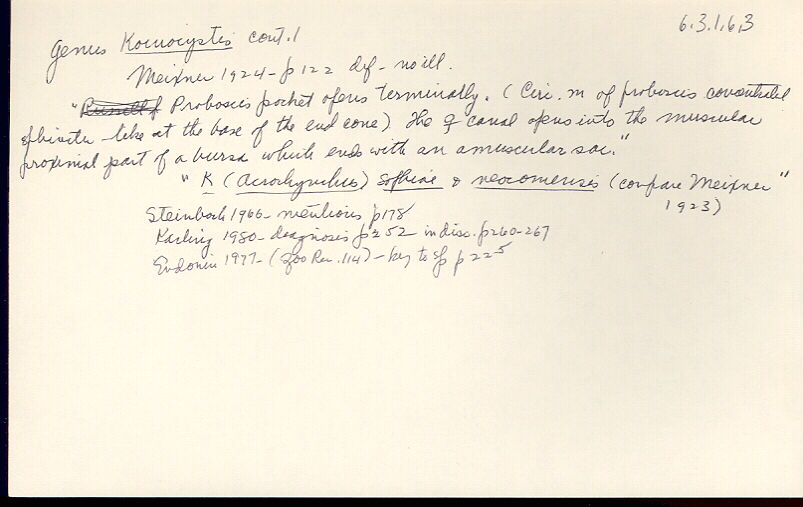 6.3.1.6.3
Genus Koinocystis cont. 1
Meixner 1924 - p 122 def - no ill.
" Proboscis pocket opens terminally. (Circ. m of proboscis concentrated
sphincter-like at the base of the end cone) The ♀ canal opens into the muscular
proximal part of a bursa which ends with an amuscular sac."
"K (Acrorhynchus) sophiae & neocomensis (compare Meixner"
1923)
Steinböck 1966 - mentions p178
Karling 1980 - diagnosis p252 in disc. p260-267
Evdonin 1977 - (Zoo Rec. 114) - key to sp p 225